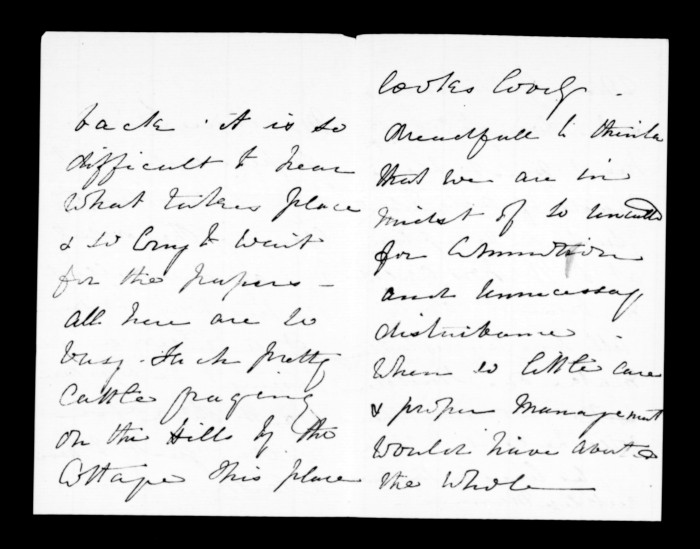 back. it is so
difficult to hear
what takes place
& so long to wait
for the papers –
all here are so
busy. Such pretty
Cattle grazing
on the Hills by the
Cottage This place
looks lovely –
dreadfull to think
that we are in
midst of so uncalled
for Commotion
and unnecessary
disturbance.
When so little care
& proper management
would have avoted
the whole